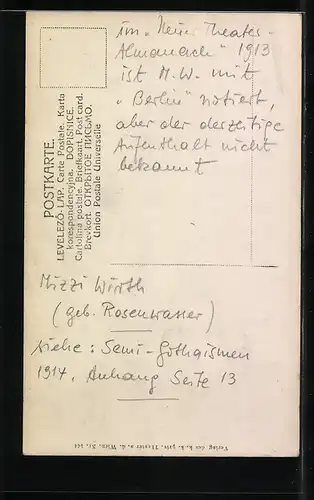 im „Neuen Theater-
Almanach" 1913
ist M.W. mit
„Berlin" notiert,
aber der derzeitige
Aufenthalt nicht
bekannt
POSTKARTE.
LEVELEZŐ-LAP. Carte Postale. Karta
korespondencyjna. DOPISNICE.
Cartolina postale. Briefkaart. Post card.
Brevkort. ОТКРЫТОЕ ПИСЬМО.
Union Postale Universelle
Mizzi Wirth
(geb. Rosenwasser)
siehe: Semi-Gothaismen
1914, Anhang Seite 13
Verlag des k. k. priv. Theater a. d. Wien, Nr. 144